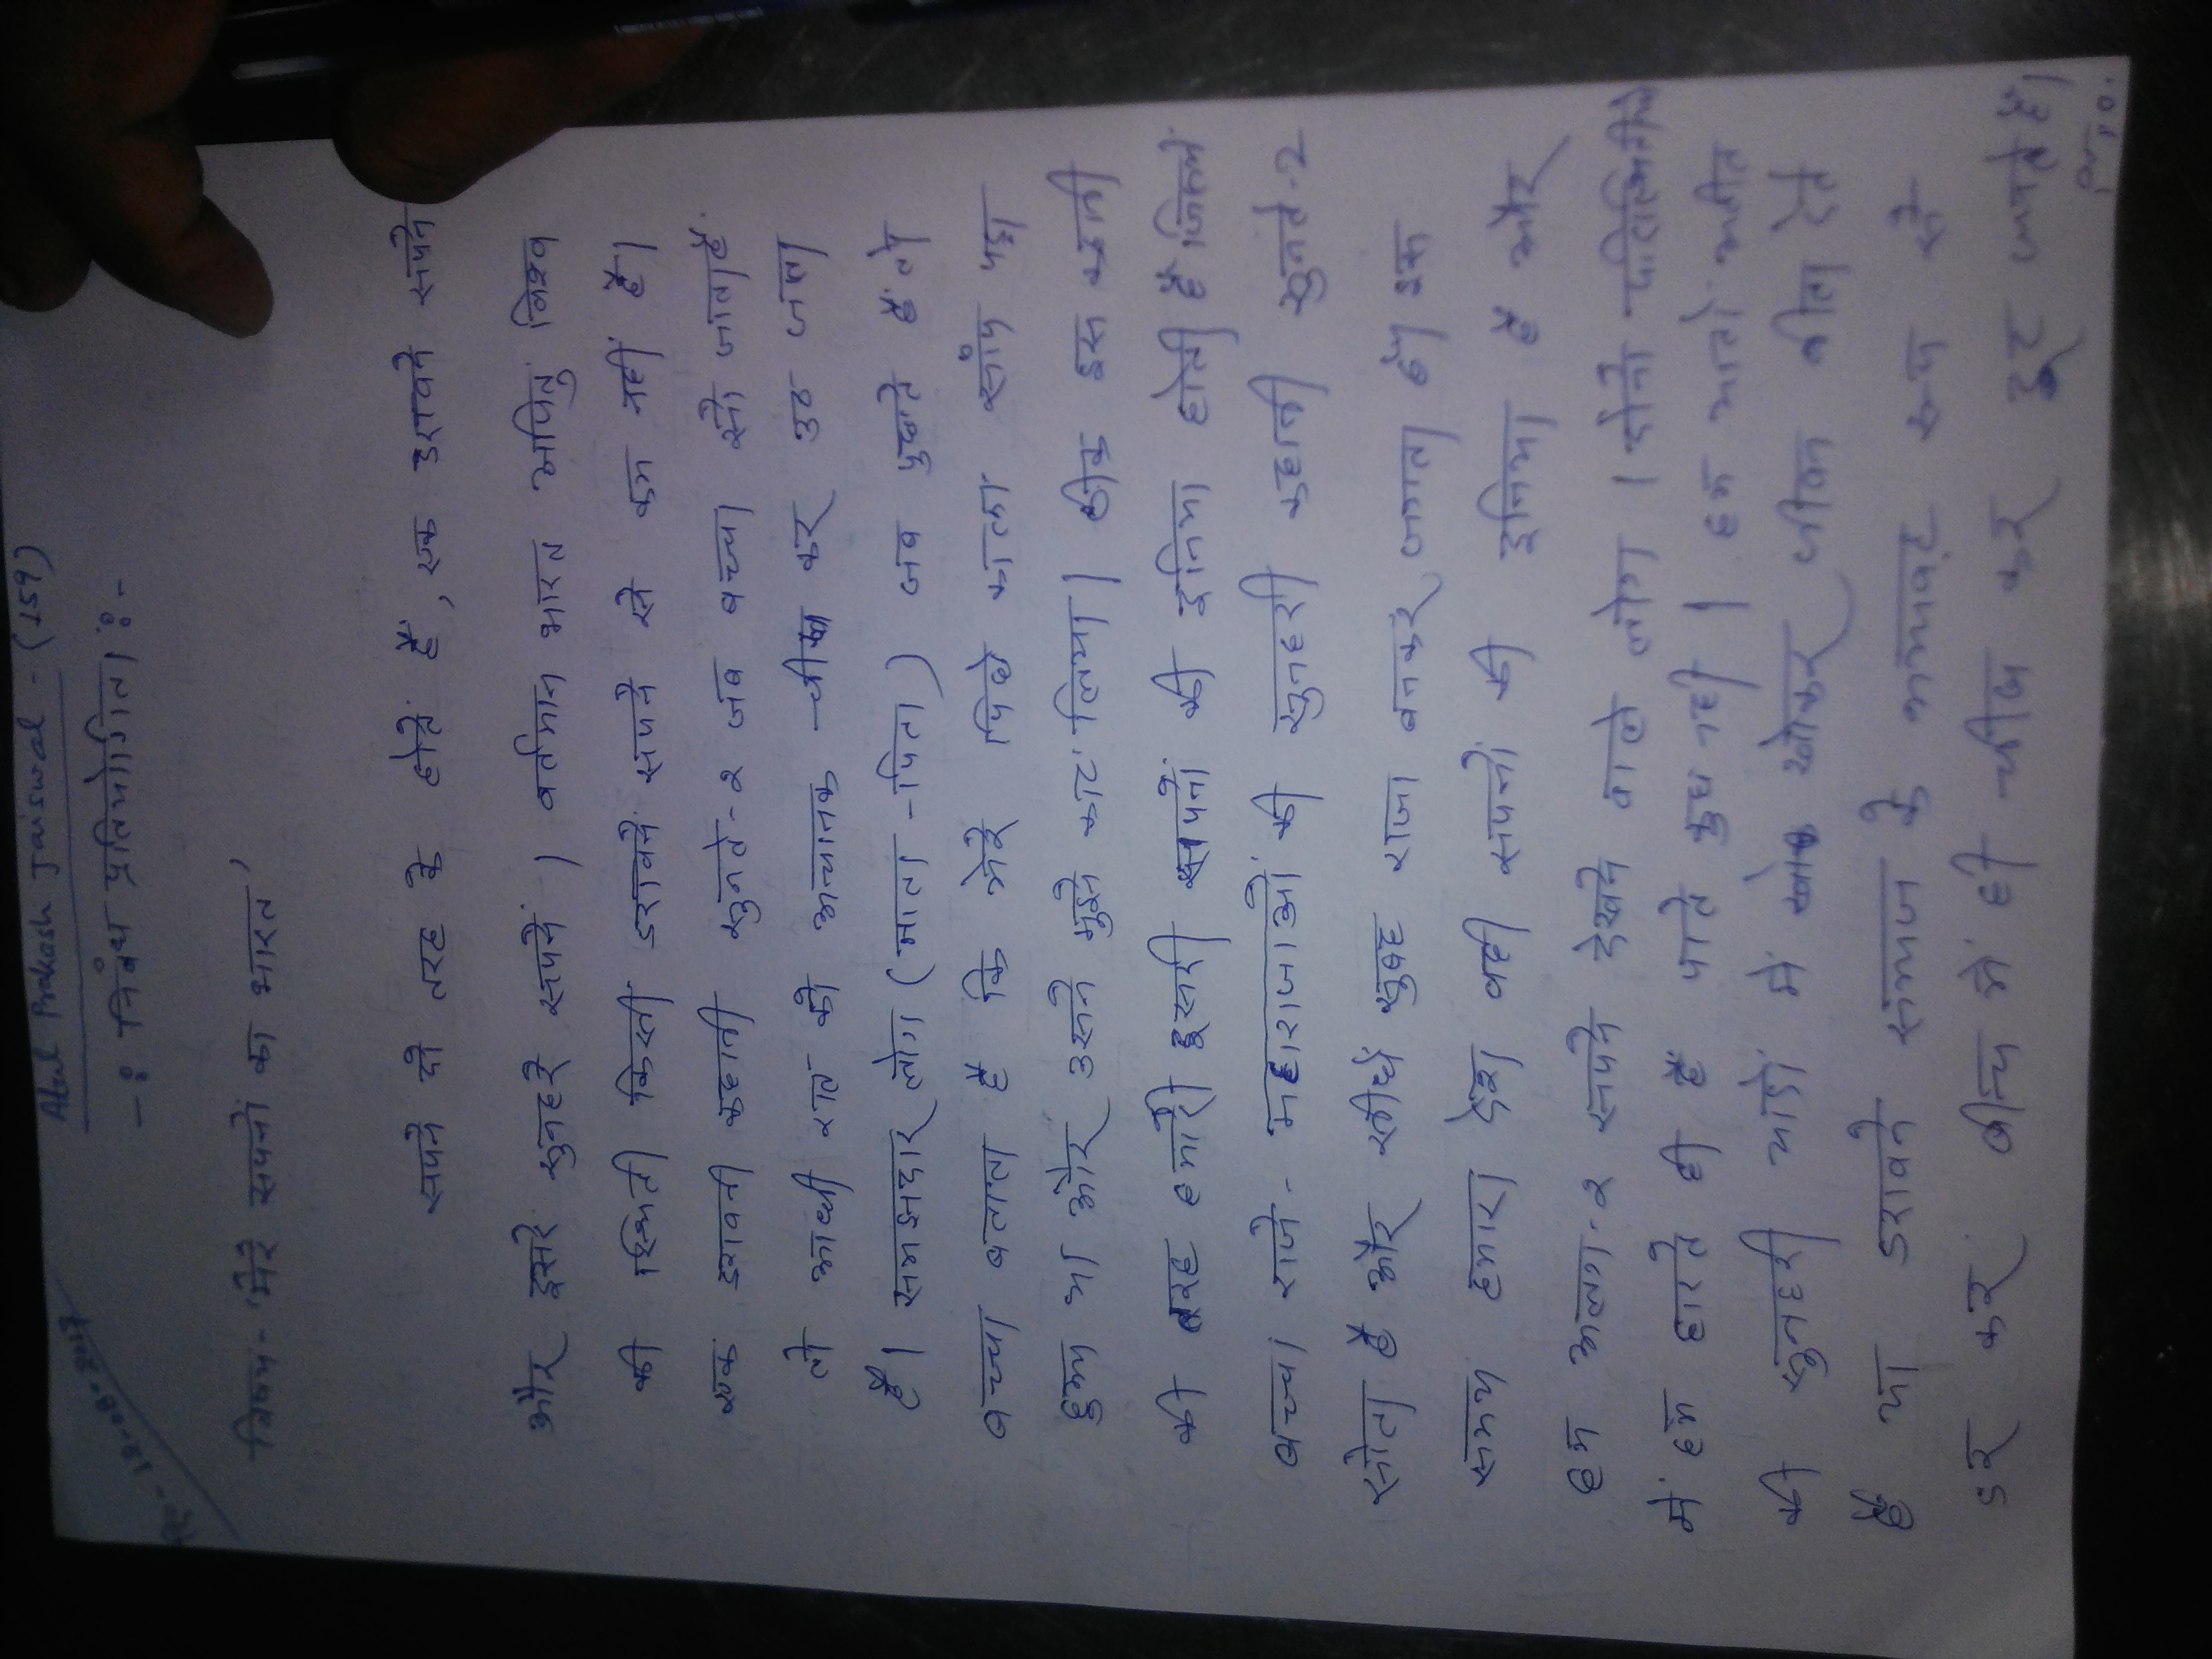 Atul Prakash Jaiswal - (159)
-: निबंध प्रतियोगिता :-
18-08-2017
विषय - 'मेरे सपनों का भारत'
सपने दो तरह के होते हैं, एक डरावने सपने
और दूसरे सुनहरे सपने। वर्तमान भारत अपितु विश्व
की स्थिति किसी डरावने सपने से कम नहीं है।
एक डरावनी कहानी सुनते-२ जब बच्चा सो जाता है
तो आधी रात को अचानक चीख कर उठ जाता
है। समझदार लोग (माता-पिता) जब पूछते हैं तो
बच्चा बताता है कि मेरे पीछे काला सांप पड़ा
हुआ था और उसने मुझे काट लिया। ठीक इस कहानी
की तरह हमारी दूसरी सपनों की दुनिया होती है जिसमें
बच्चा राजे-महाराजाओं की सुनहरी कहानी सुनते-२
सोता है और सीधे सुबह राजा बनकर जागता है। इस
समय हमारा देश वही सपनों की दुनिया है और
हम अलग-२ सपने देखने वाले लोग। दोनों परिस्थितियों
में हम हारते ही हैं पाते कुछ नहीं। हम मानो अतीत
की सुनहरी यादों में खोकर जीवन बीता देते
हैं या डरावने समाज के भयावह रूप से
डर कर बीच में ही चीख कर टूट जाते हैं।